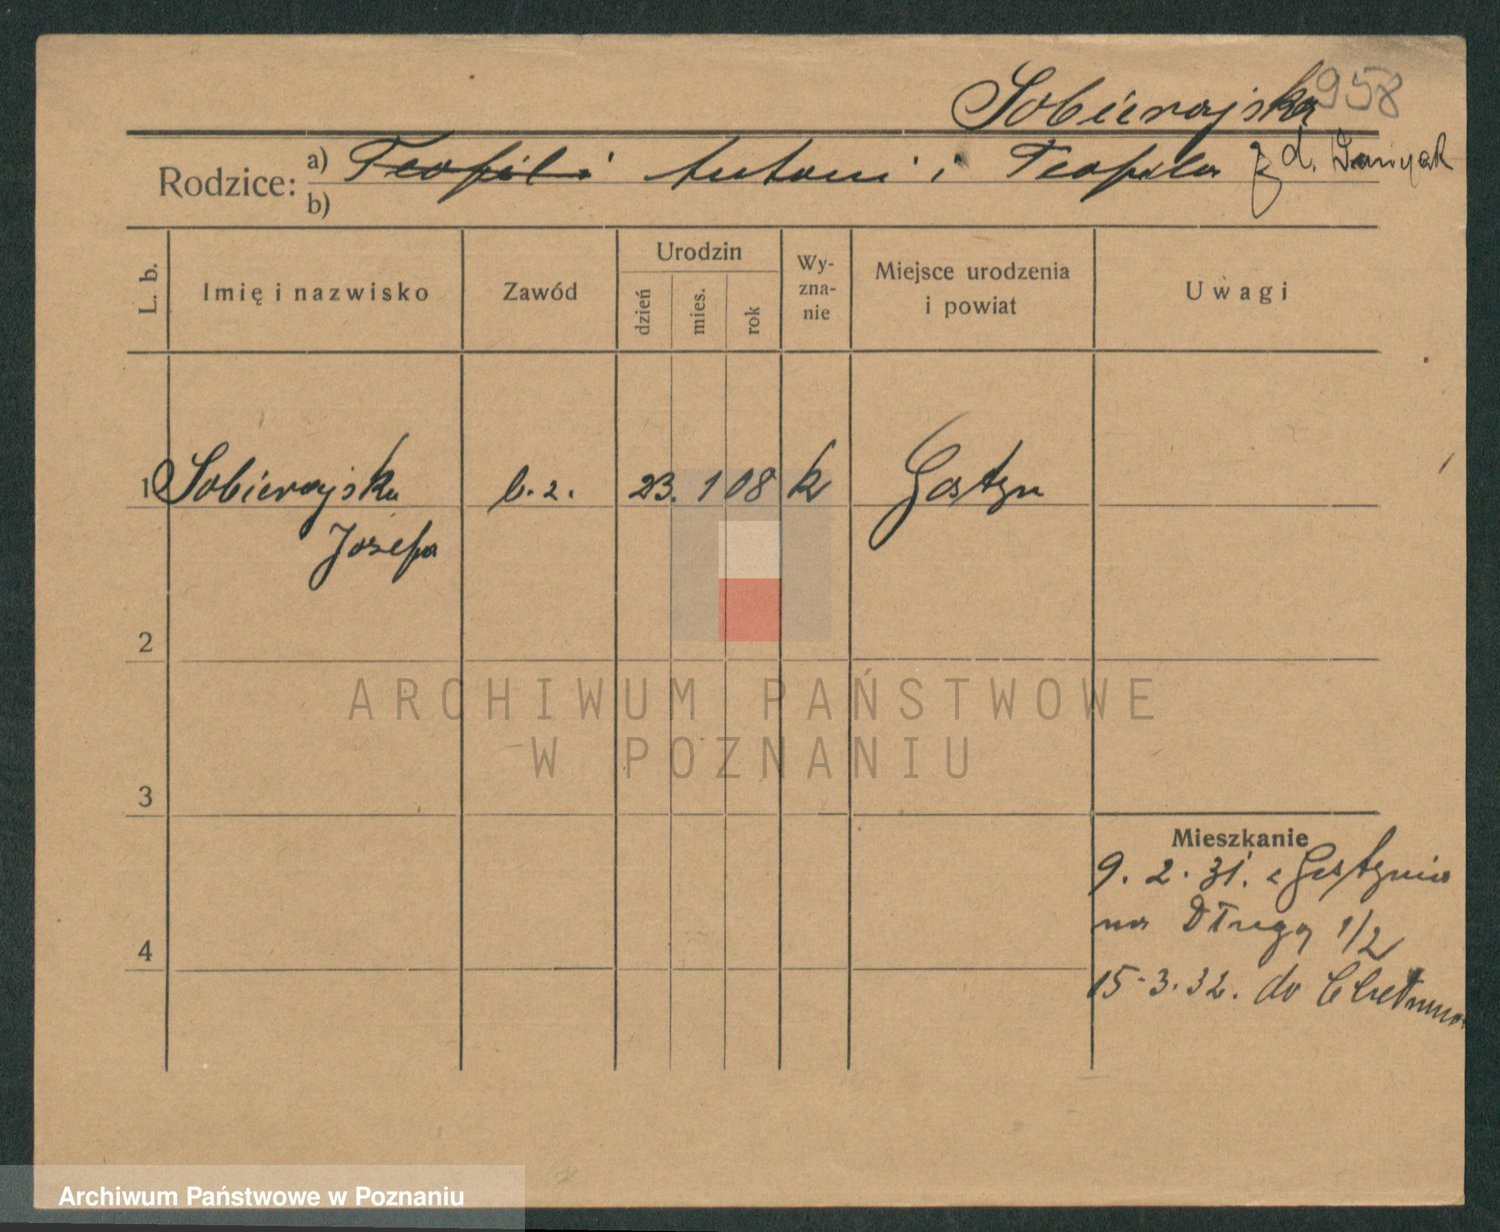 Sobierajska 958
Rodzice:
a) Teofili Antoni i Teofila z d.
b)
L. b.
Imię i nazwisko
Zawód
Urodzin
dzień
mies.
rok
Wy-
zna-
nie
Miejsce urodzenia
i powiat
Uwagi
1 Sobierajska b. z. 23. 1 08 k Gostyn
Józefa
2
3
4
Mieszkanie
9. 2. 31. z Gostynia
na Długą 1/2
15.3.32. do Chełmna
ARCHIWUM PAŃSTWOWE
W POZNANIU
Archiwum Państwowe w Poznaniu